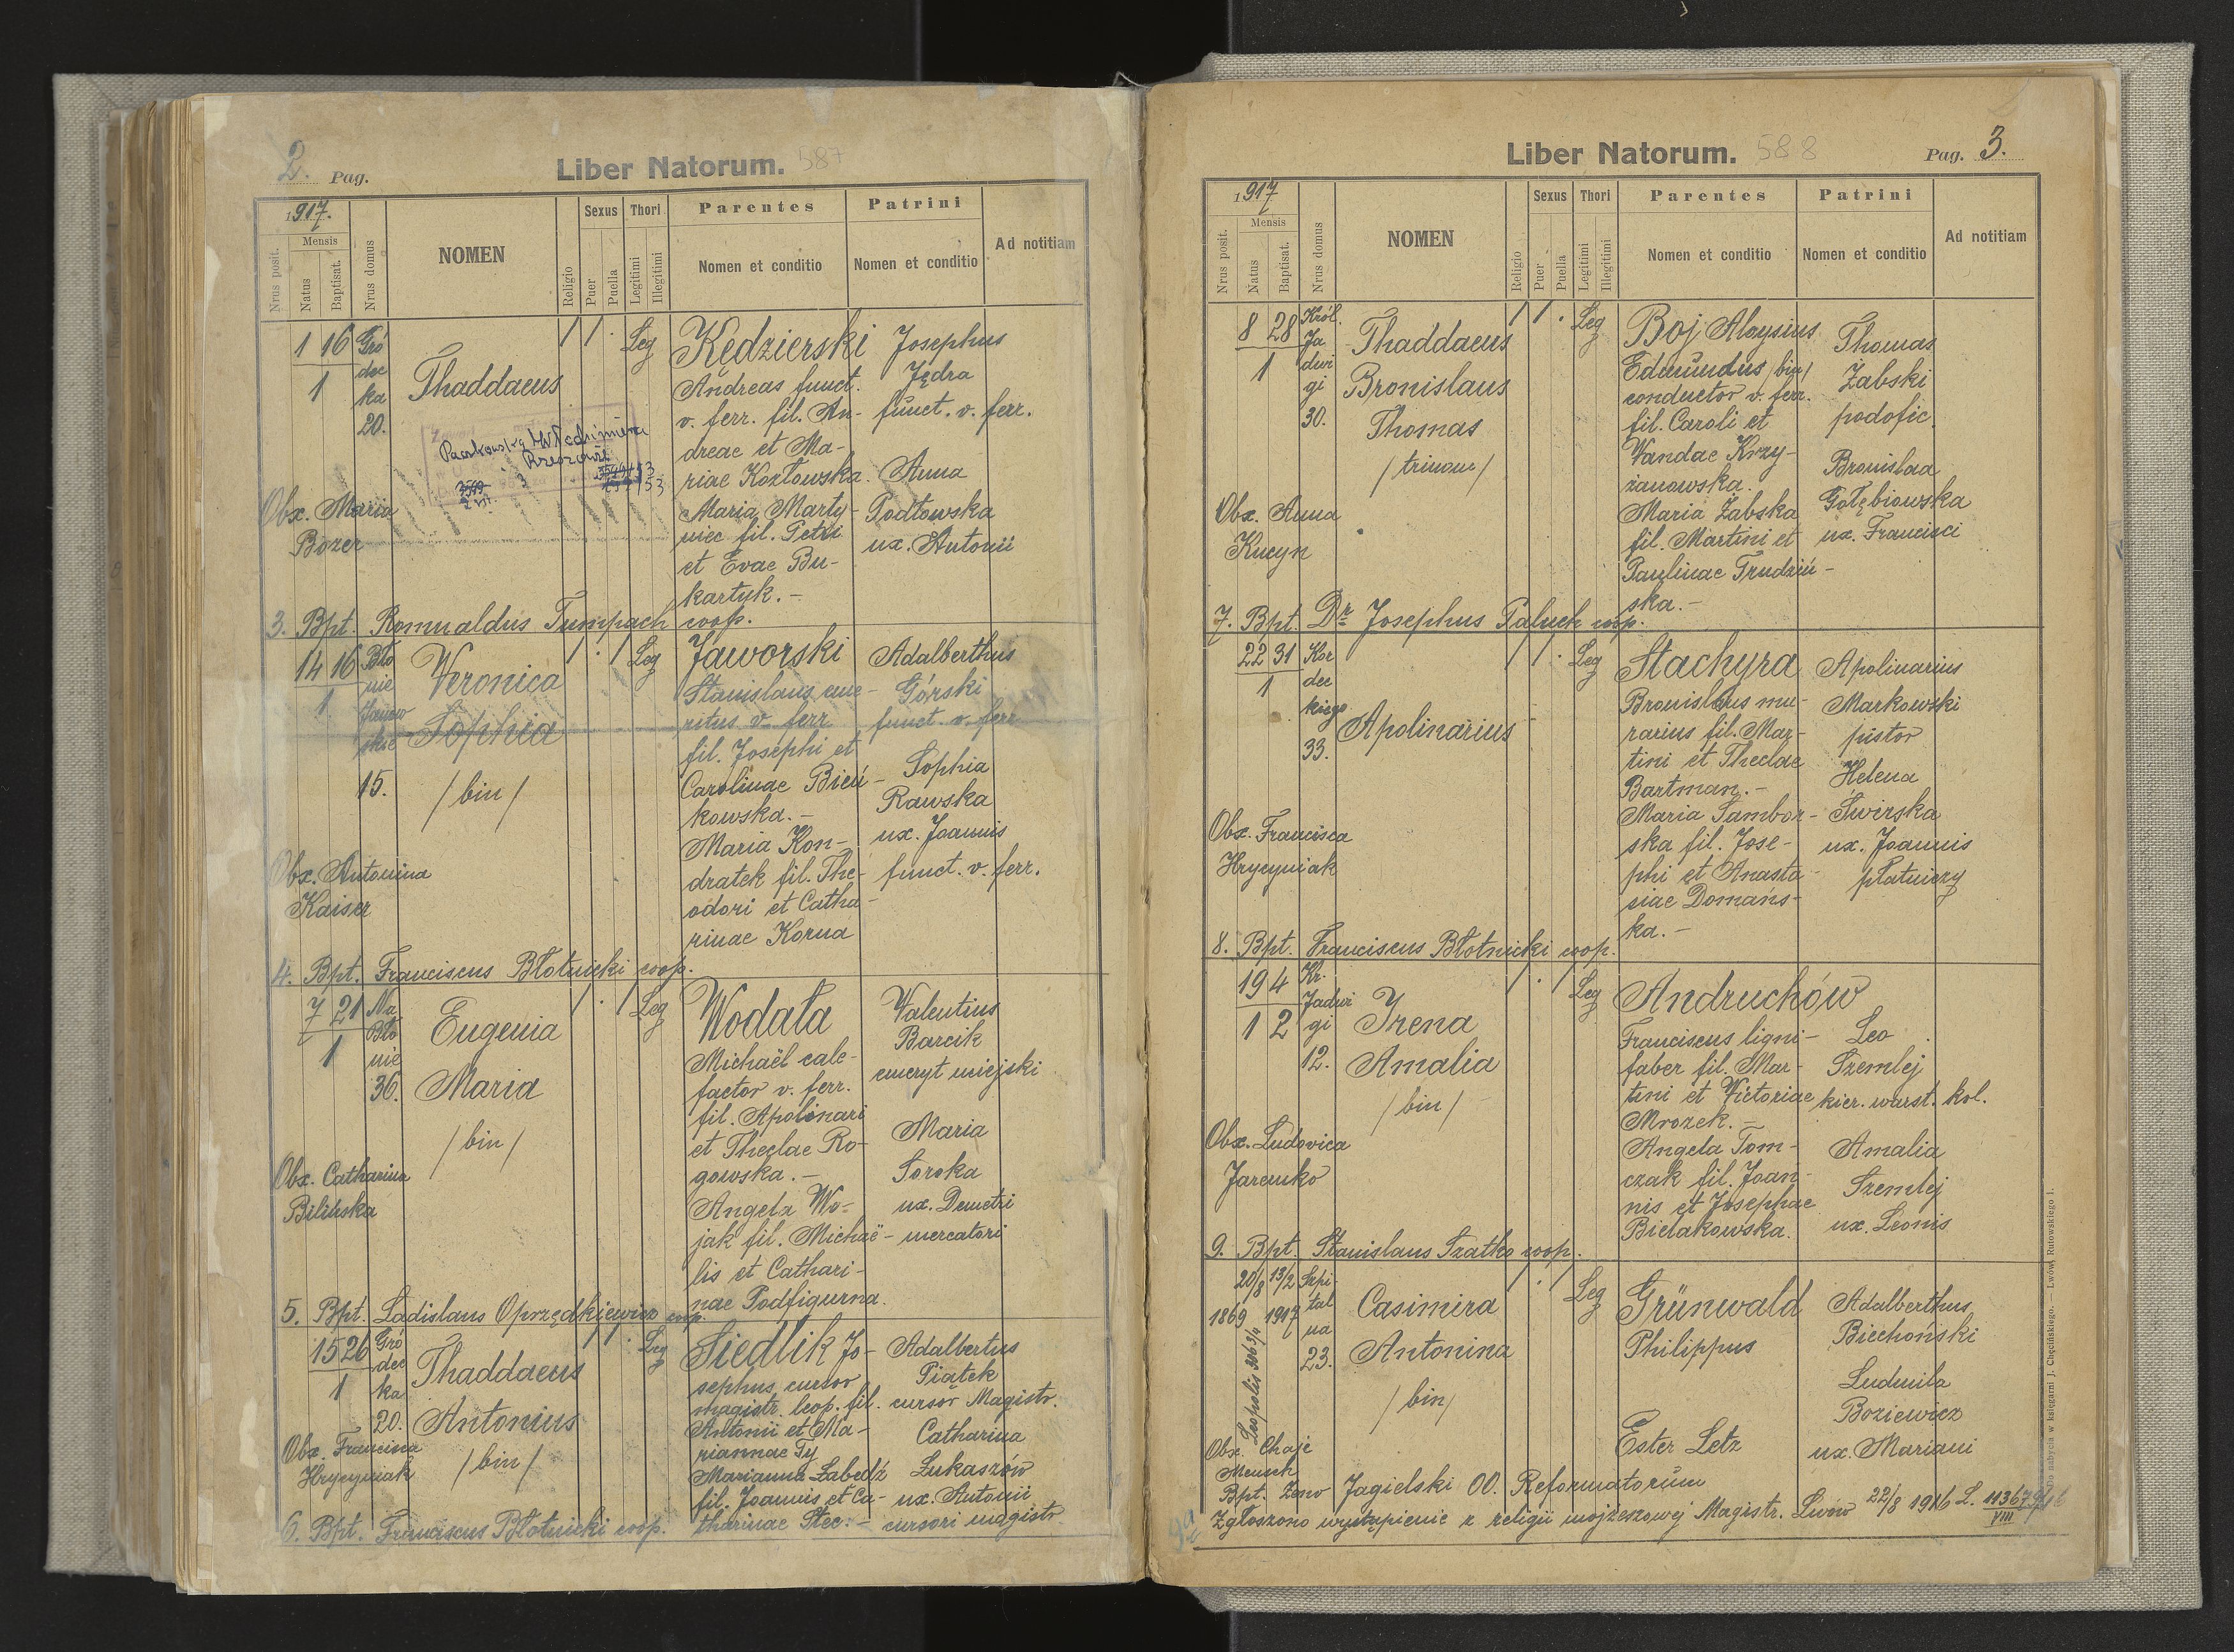 2. Pag.
Liber Natorum. 587
1917.
Nrus posit.
Mensis
Natus
Baptisat.
Nrus domus
NOMEN
Religio
Sexus
Puer
Puella
Thori
Legitimi
Illegitimi
Parentes
Nomen et conditio
Patrini
Nomen et conditio
Ad notitiam
1 16 Gró
1
dec
ka
20.
Thaddaeus
1 1 · Leg
Kędzierski
Andreas funct.
v. ferr. fil. An-
dreae et Ma-
riae Kozłowska.
Maria Marty-
niec fil. Petri
et Evae Bu-
kartyk.-
Josephus
Jędra
funct. v. ferr.
Anna
Podłowska
ux. Antonii
Rzeszowie
Obx. Maria
Bozer
3. Bpt. Romualdus Tumpach coop.
14 16 Bło
1
nie
Janow
skie
15.
Veronica
Sophia
/bin/
1 · 1 Leg
Jaworski
Stanislaus eme-
ritus v. ferr.
fil. Josephi et
Carolinae Bień-
kowska.-
Maria Kon-
dratek fil. The-
odori et Catha-
rinae Korna
Adalberthus
Górski
funct. v. ferr.
Sophia
Rawska
ux. Joannis
funct. v. ferr.
Obx. Antonina
Kaiser
4. Bpt. Franciscus Błotnicki coop.
7 21 Na
1
Bło
nie
36.
Eugenia
Maria
/bin/
1 · 1 Leg
Wodała
Michaël cale-
factor v. ferr.
fil. Apolinari
et Theclae Ro-
gowska.-
Angela Wo-
jak fil. Michaë-
lis et Cathari-
nae Podfigurna.
Valentius
Barcik
emeryt miejski
Maria
Soroka
ux. Demetri
mercatori
Obx. Catharina
Bilińska
5. Bpt. Ladislaus Oprzędkiewicz coop.
15 26 Gró
1
dec
ka
20.
Thaddaeus
Antonius
/bin/
· Leg
Siedlik Jo-
sephus cursor
magistr. leop. fil.
Antonii et Ma-
riannae Ty
Marianna Łabędź
fil. Joannis et Ca-
tharinae Stec.-
Adalbertus
Piątek
cursor Magistr.
Catharina
Łukaszów
ux. Antonii
cursori magistr
Obx. Francisca
Hrycyniak
6. Bpt. Franciscus Błotnicki coop.
Liber Natorum. 588
Pag. 3.
1917
Nrus posit.
Mensis
Natus
Baptisat.
Nrus domus
NOMEN
Religio
Sexus
Puer
Puella
Thori
Legitimi
Illegitimi
Parentes
Nomen et conditio
Patrini
Nomen et conditio
Ad notitiam
8 28 Król.
1
Ja
dwi
gi
30.
Thaddaeus
Bronislaus
Thomas
/trinom/
1 1 · Leg
Boj Aloysius
Edmundus /bin/
conductor v. ferr.
fil. Caroli et
Wandae Krzy-
żanowska.
Maria Żabska
fil. Martini et
Paulinae Trudziń-
ska.-
Thomas
Żabski
podofic.
Bronislaa
Gołębiowska
ux. Francisci
Obx. Anna
Kucyn
7. Bpt. Dr Josephus Paluch coop.
22 31 Kor
1
dec
kiego
33.
Apolinarius
1 1 · Leg
Stachyra
Bronislaus mu-
rarius fil. Mar-
tini et Theclae
Bartman.-
Maria Sambor-
ska fil. Jose-
phi et Anasta-
siae Domańs-
ka.-
Apolinarius
Markowski
pistor
Helena
Świrska
ux. Joannis
płatniczy
Obx. Francisca
Hrycyniak
8. Bpt. Franciscus Błotnicki coop.
19 4 Kr.
1 2
Jadwi
gi
12.
Irena
Amalia
/bin/
1 · 1 Leg
Andruchów
Franciscus ligni-
faber fil. Mar-
tini et Victoriae
Mrozek.-
Angela Tom-
czak fil. Joan-
nis et Josephae
Bielakowska.
Leo
Szemlej
kier. warst. kol.
Amalia
Szemlej
ux. Leonis
Obx. Ludovica
Jaremko
9. Bpt. Stanislaus Szatko coop.
20/8 13/2 Szpi-
1869 1917 tal
na
23.
Leopolis 306 3/4
Casimira
Antonina
/bin/
1 · 1 Leg
Grünwald
Philippus
Ester Letz
Adalberthus
Biechoński
Ludmila
Boziewicz
ux. Mariani
Obx. Chaje
Mensch
Bpt. Zeno Jagielski OO. Reformatorum
9a Zgłoszono wystąpienie z religii mojżeszowej Magistr. Lwów 22/8 1916 L. 113679/16
VIII
Do nabycia w księgarni J. Chęcińskiego. — Lwów, Rutowskiego 1.